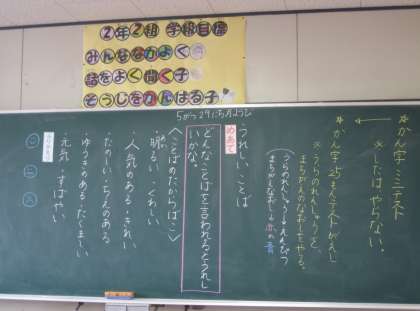 2年2組 学級目標
みんななかよく
話をよく聞く子
そうじをがんばる子
5がつ29にちかようび
＊かん字ミニテスト
・したはやらない。
＊かん字25まんテストがえし
・うらのれんしゅうを、
まちがえなおしをやる。
うれしいことば
めあて
どんなことばを言われるとうれし
いかな。
〈ことばのたからばこ〉
・明るい・くわしい
・人気のある・きれい
・たのしい・ちえのある
・ゆうきのある・たくましい
・元気・すばやい